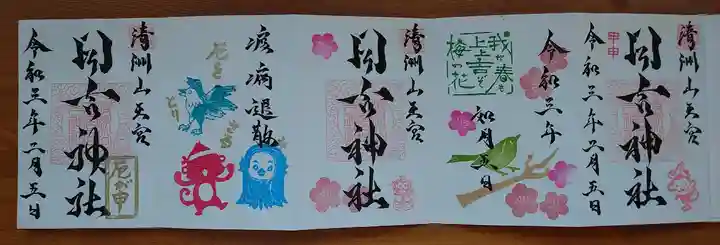 清洲山王宮
日吉神社
甲申
令和三年二月五日
令和三年
如月五日
我が春も
上々吉ぞ
梅の花
清洲山王宮
日吉神社
疫病退散
厄を
とり
さる
清洲山王宮
日吉神社
厄が申
令和三年二月五日